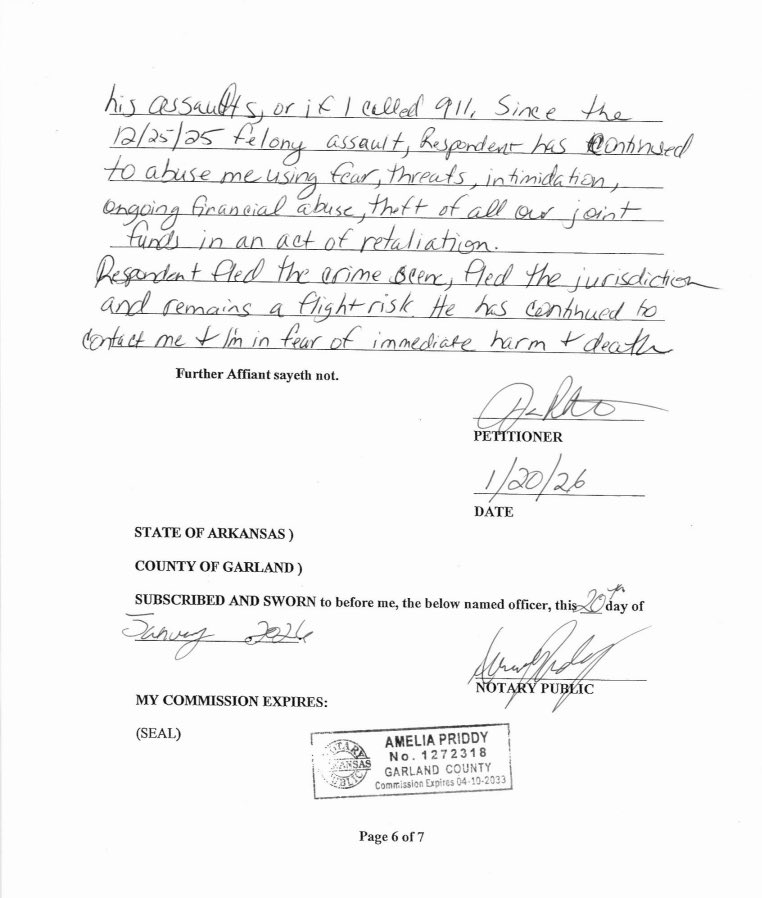 his assaults, or if I called 911. Since the
12/25/25 felony assault, Respondent has continued
to abuse me using fear, threats, intimidation,
ongoing financial abuse, theft of all our joint
funds in an act of retaliation.
Respondent fled the crime scene, fled the jurisdiction
and remains a flight risk He has continued to
contact me + I'm in fear of immediate harm + death
Further Affiant sayeth not.
PETITIONER
1/20/26
DATE
STATE OF ARKANSAS )
COUNTY OF GARLAND )
SUBSCRIBED AND SWORN to before me, the below named officer, this 20th day of
January 2026
NOTARY PUBLIC
MY COMMISSION EXPIRES:
(SEAL)
NOTARY
ARKANSAS
PUBLIC
AMELIA PRIDDY
No. 1272318
GARLAND COUNTY
Commission Expires 04-10-2033
Page 6 of 7